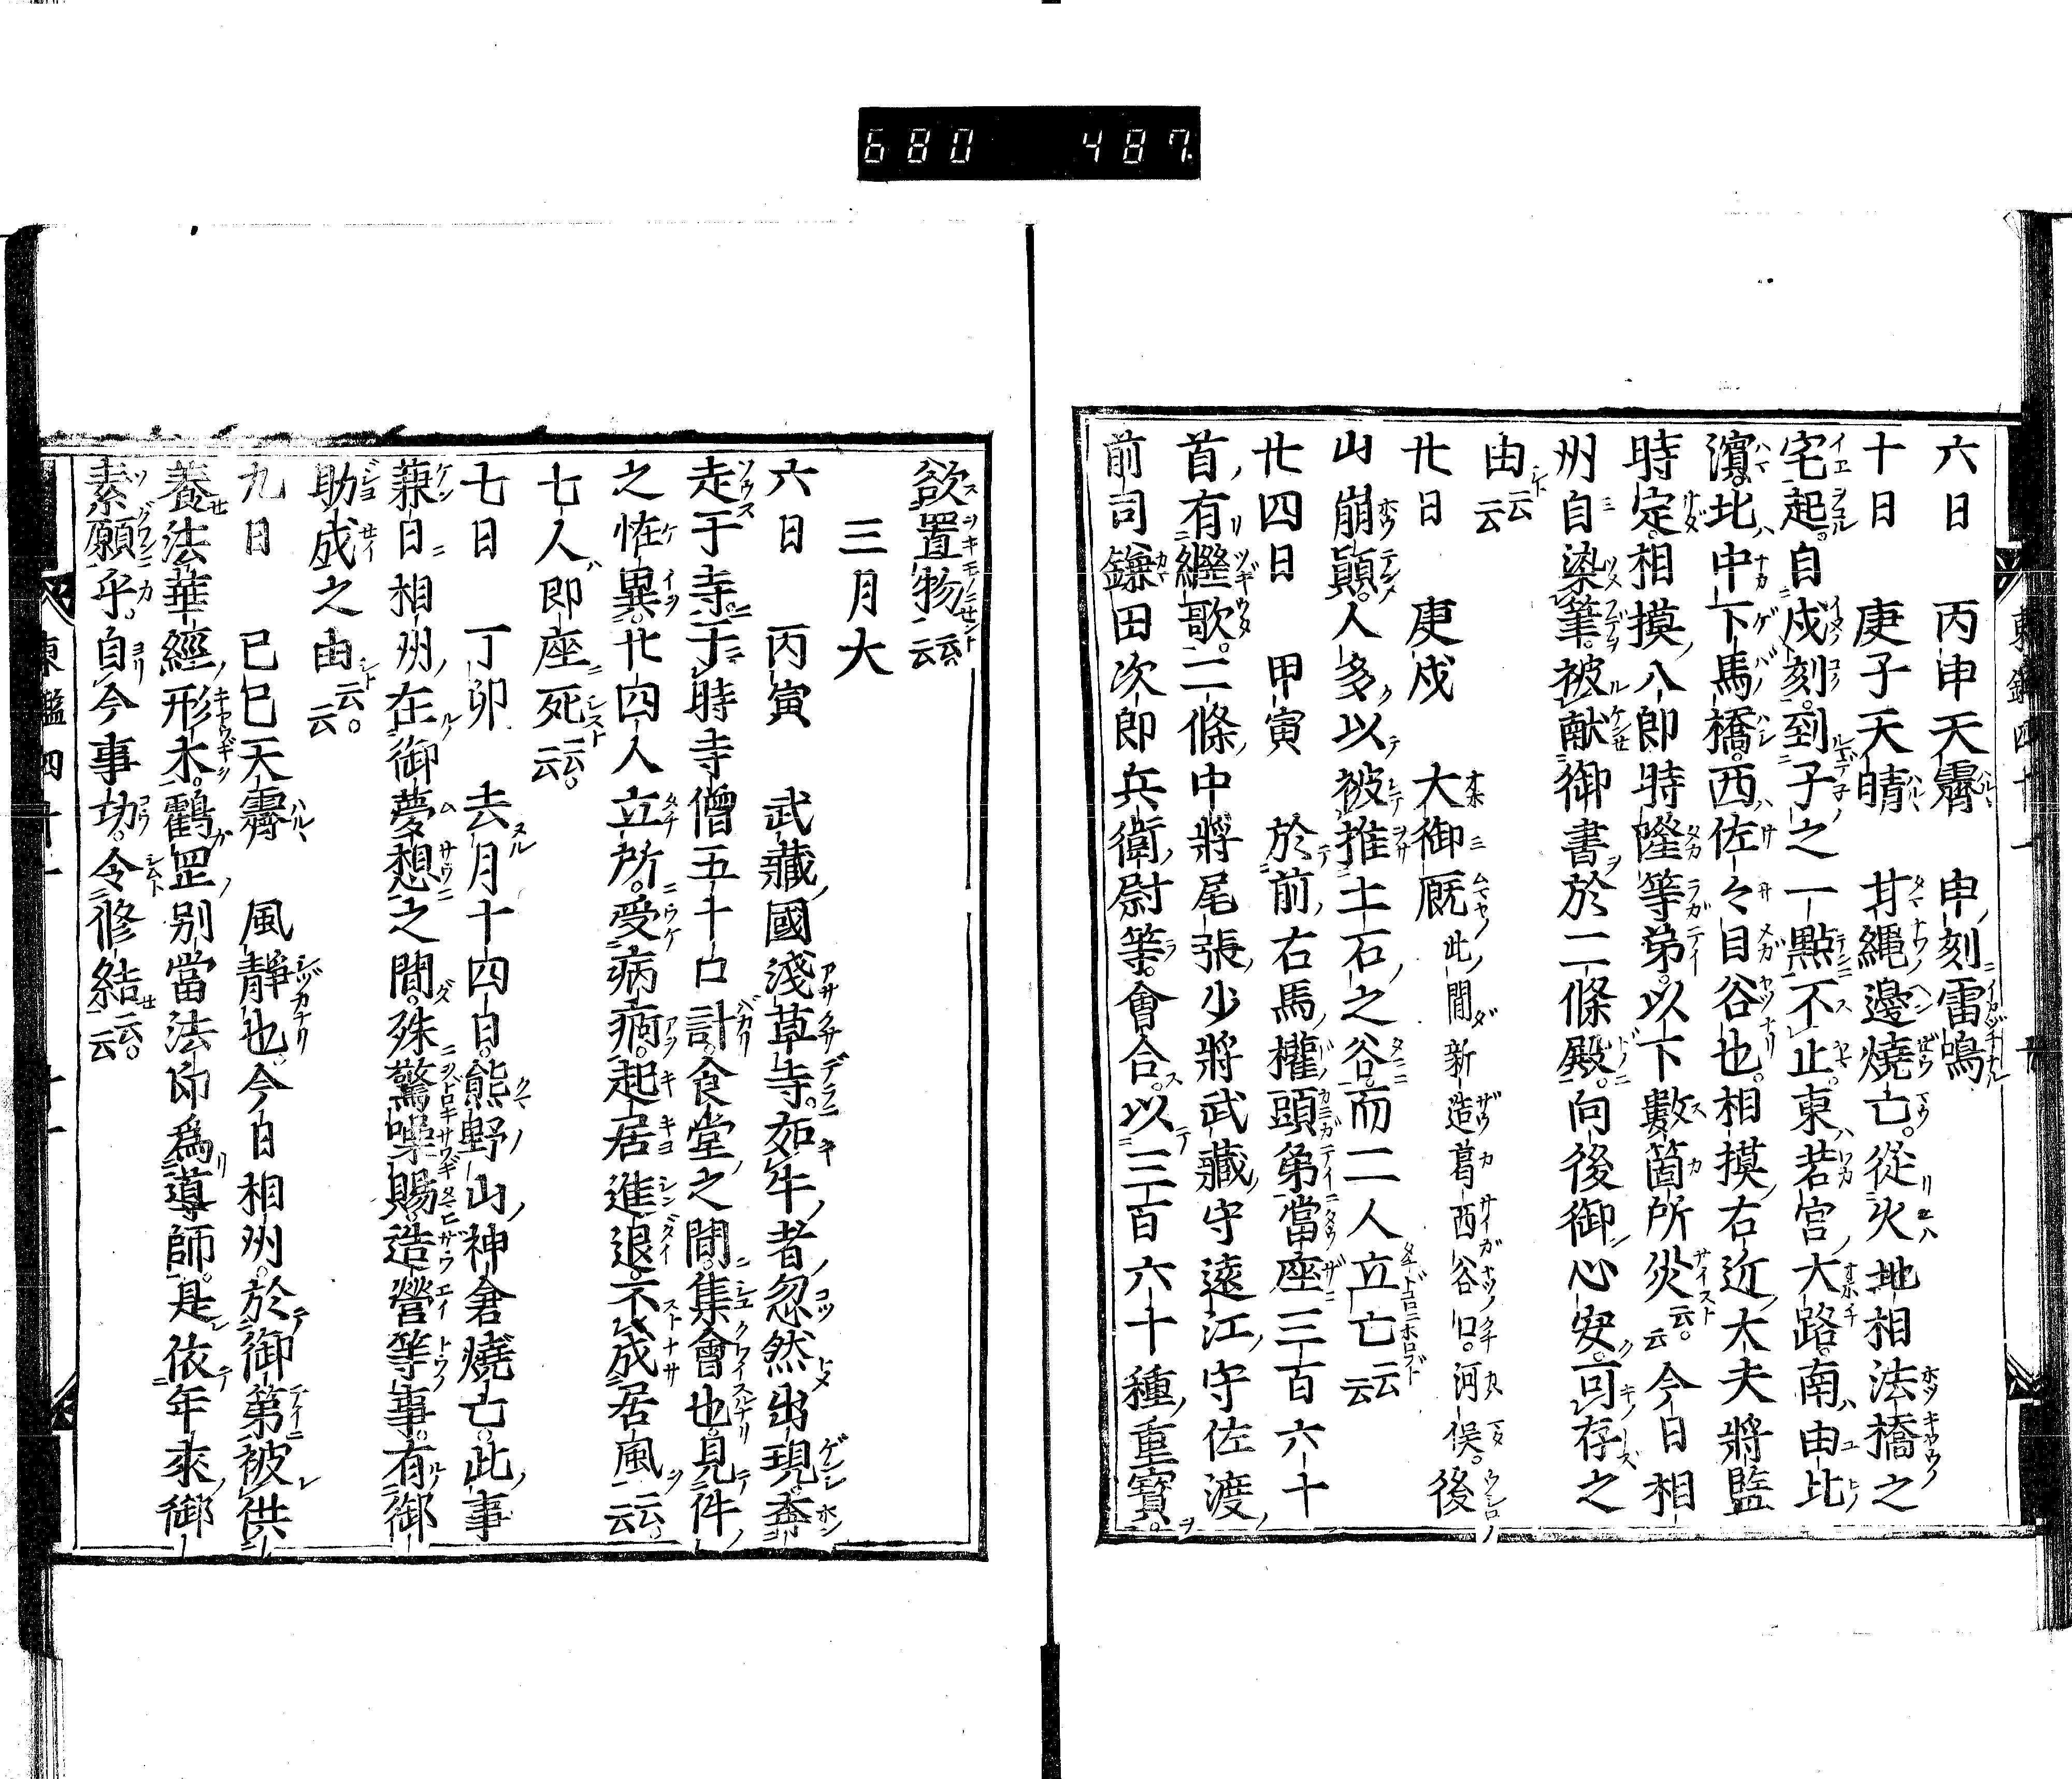 680 487.
六日 丙申天霽 申刻雷鳴
十日 庚子天晴 甘繩邊燒亡。從火地相法橋之
宅起。自戌刻。到子之一點不止。東若宮大路。南由比
濱。北中下馬橋。西佐々目谷也。相摸右近大夫將監
時定。相摸八郎時隆等第。以下數箇所災云云。今日相
州自染筆。被献御書於二條殿。向後御心安。可存之
由云云
廿日 庚戌 大御厩此間新造葛西谷口。河俣。後
山崩顛。人多以被推土石之谷。而二人立亡云云
廿四日 甲寅 於前右馬權頭第。當座三百六十
首。有繼歌。二條中將尾張少將武藏守遠江守佐渡
前司鎌田次郎兵衛尉等。會合。以三百六十種重寶。
欲置物云云
三月大
六日 丙寅 武藏國淺草寺。如牛者。忽然出現。奔
走于寺。于時寺僧五十口計。食堂之間。集會也。見件
之恠異。廿四人立所。受病痾。起居進退。不成居風云云。
七人即座死云云。
七日 丁卯 去月十四日。熊野山神倉燒亡。此事
兼日相州在御夢想之間。殊驚噪賜。造營等事。有御
助成之由云云。
九日 己巳天霽 風靜也今日相州。於御第被供
養法華經形木。鶴罡別當法印爲導師。是依年來御
素願乎。自今事功。令修結云云。